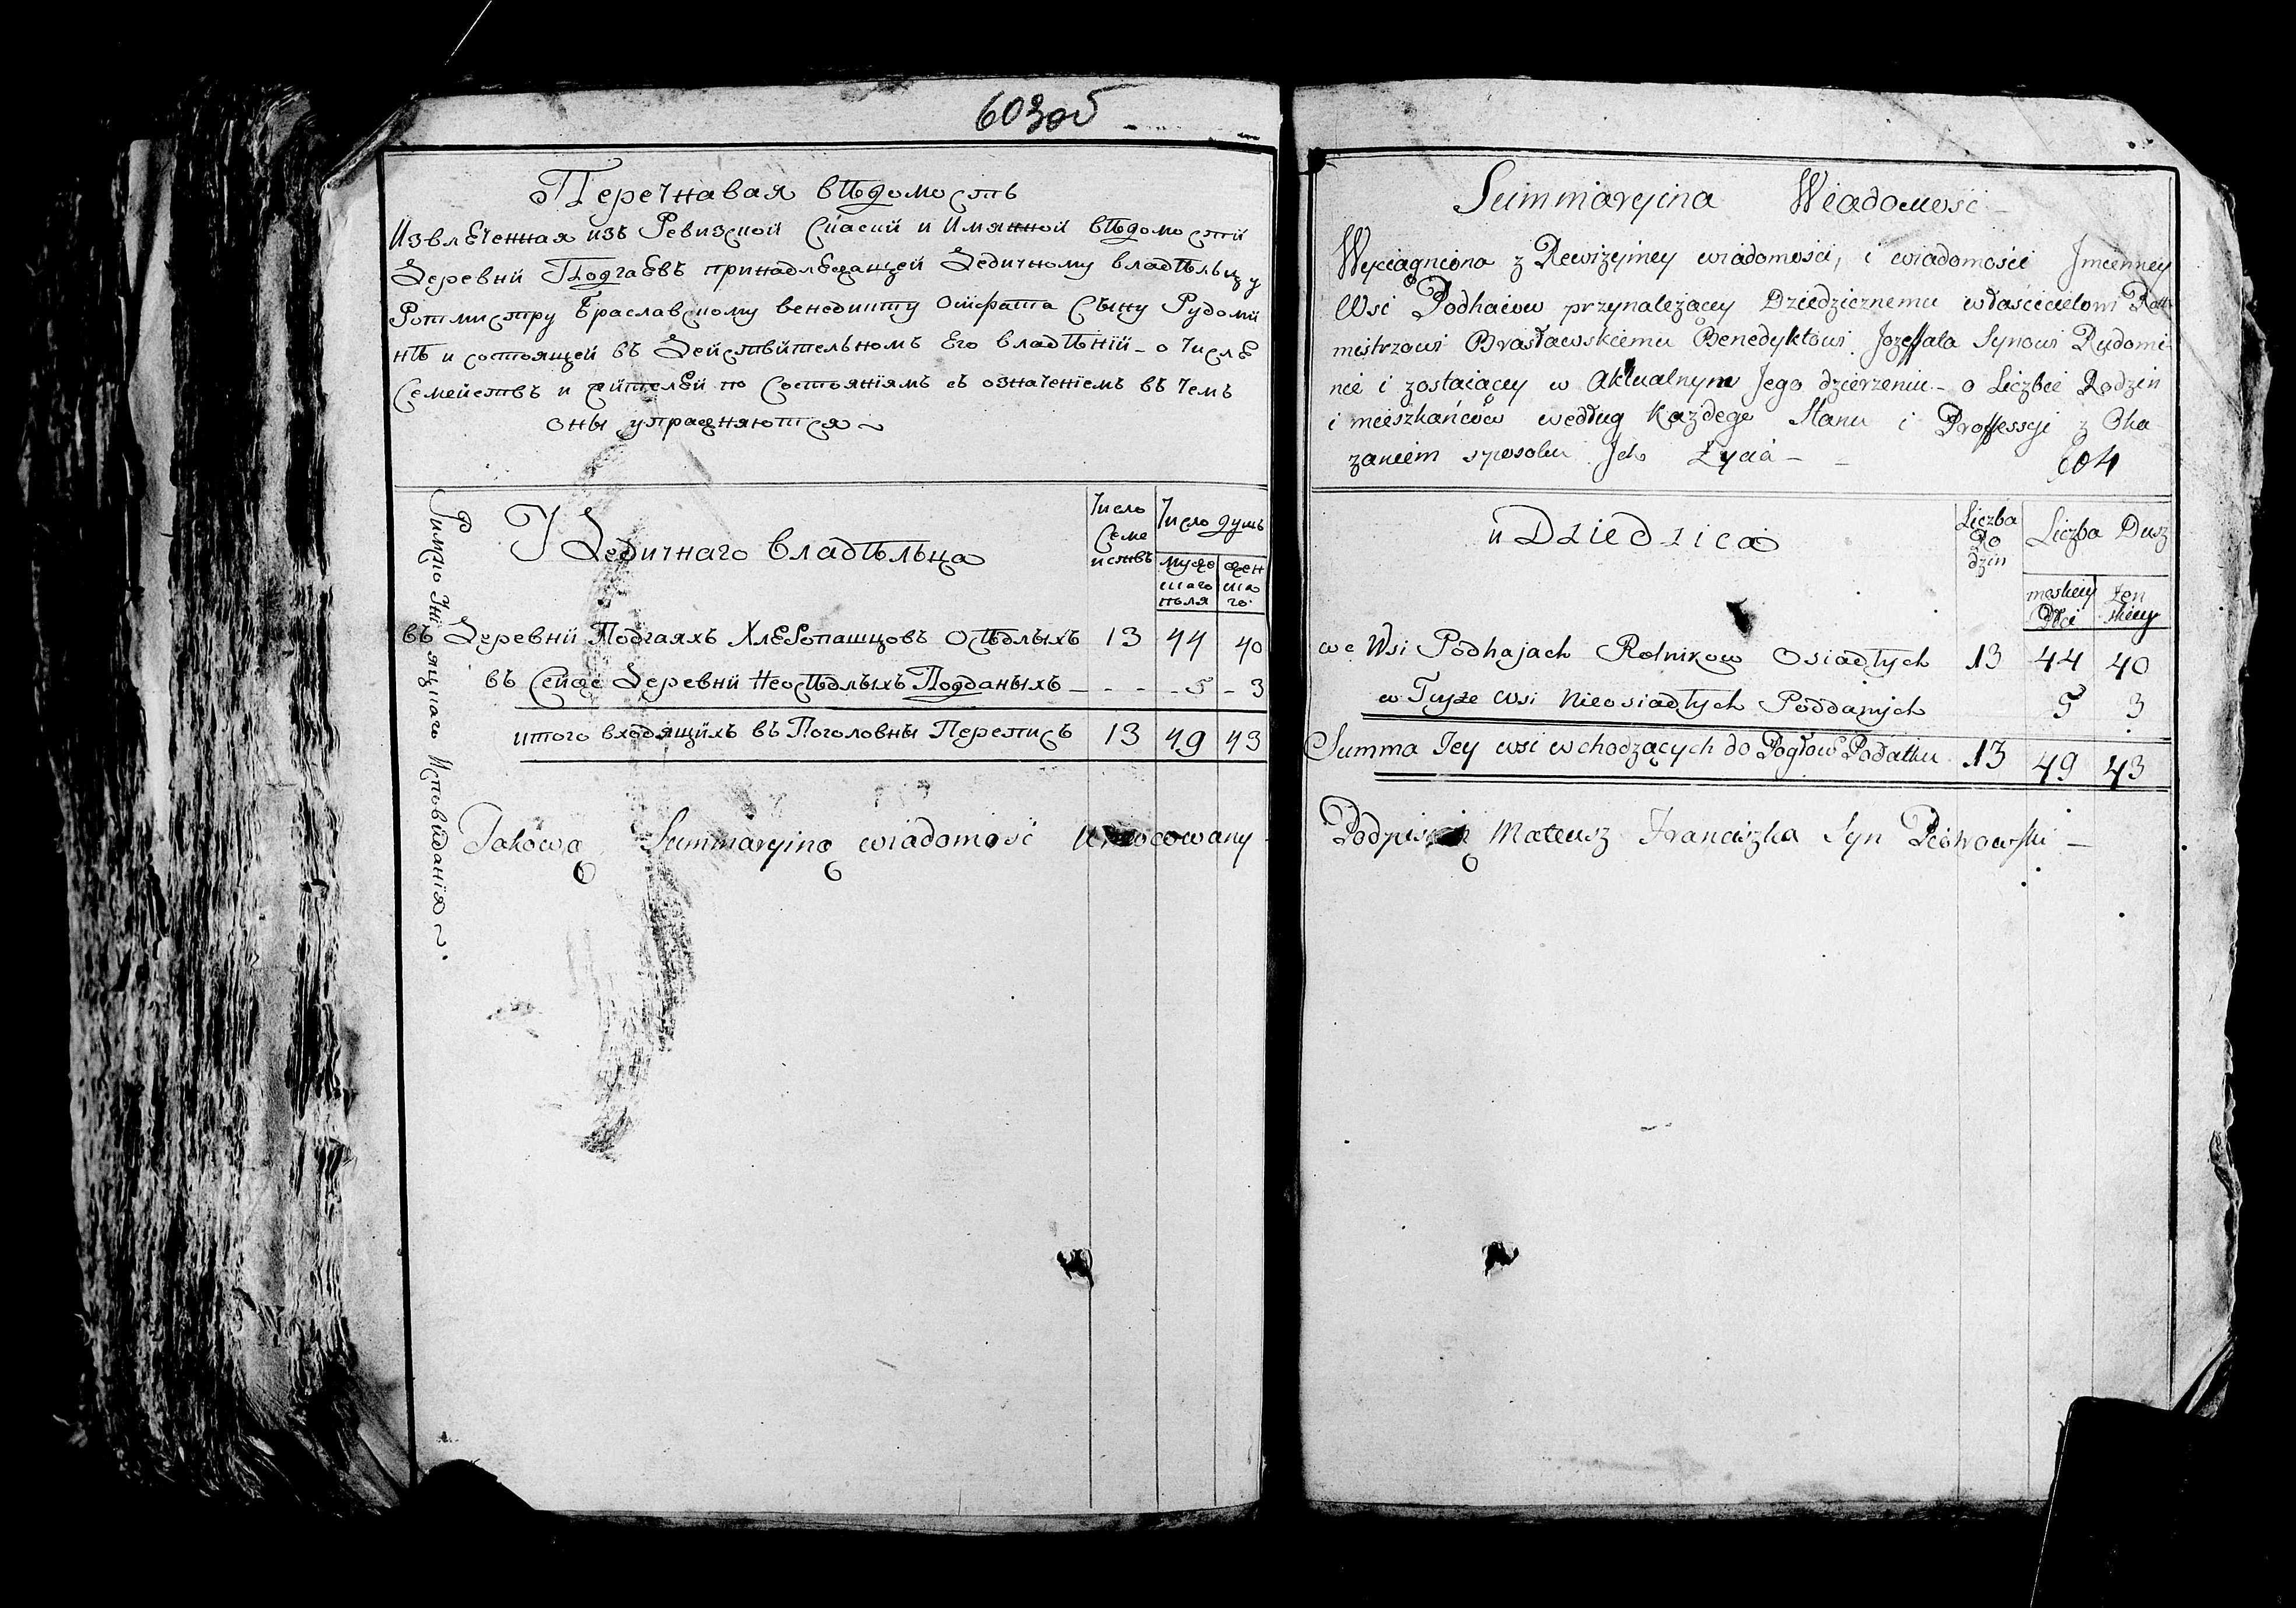 603об
Перечнавая вѣдомость
Извлеченная изъ Ревизской Сказки и Имянной вѣдомости
Деревни Подгаевъ принадлежащей Дедичному владѣльцу
Ротмистру Браславскому венедикту Сына Рудоми
нѣ и состоящей въ Действительномъ Его владѣніи - о Числе
Семействъ и жителей по Состояніямъ съ означеніемъ въ чемъ
оны упражняются ~
Римско Уніяцкаго Исповиданія ~
У Дедичнаго Владѣльца
Число Семе иствъ
Число душъ
мужескаго пола
женска го
въ Деревни Подгаяхъ Хлебопашцовъ Осѣдлыхъ 13 44 40
въ Сейже Деревни Неосѣдлыхъ Подданыхъ - - - - 5 - 3
итого входящихъ въ Поголовны Переписъ 13 49 43
Takową Summaryiną wiadomość Umocowany
Summaryina Wiadomość
Wyciągniona z Rewizyiney wiadomości, i wiadomości Imienney
Wsi Podhaiow przynależącey Dziedzicznemu właścicielowi Rot-
mistrzowi Brasławskiemu Benedyktowi Jozeffata Synowi Rudomi-
nie i zostaiącey w Aktualnym Jego dzierzeniu - o Liczbie Rodzin
i mieszkańców według Każdego Stanu i Proffessyi z Oka
zaniem sposobu Ich Życia - -
604
u Dziedzica
Liczba Ro dzin
Liczba Dusz
męskiey Płci
Żen skiey
we Wsi Podhajach Rolnikow Osiadłych 13 44 40
w Teyże Wsi Nieosiadłych Poddanych 5 3
Summa Tey wsi wchodzących do Pogłow Podatku 13 49 43
Podpisuię Mateusz Franciszka Syn Piotrowski -